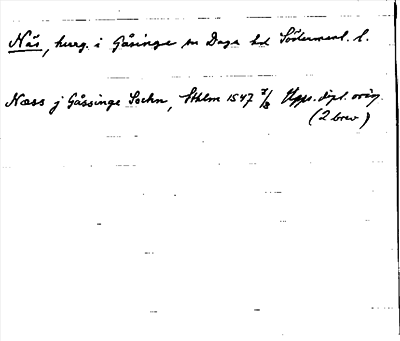 Näs, herrg. i Gåsinge sn Daga hd Söderманl. l.
Næss j Gåssinge Sockn, Sthlm 1547 7/8 Upps. dipl. orig.
(2 brev)